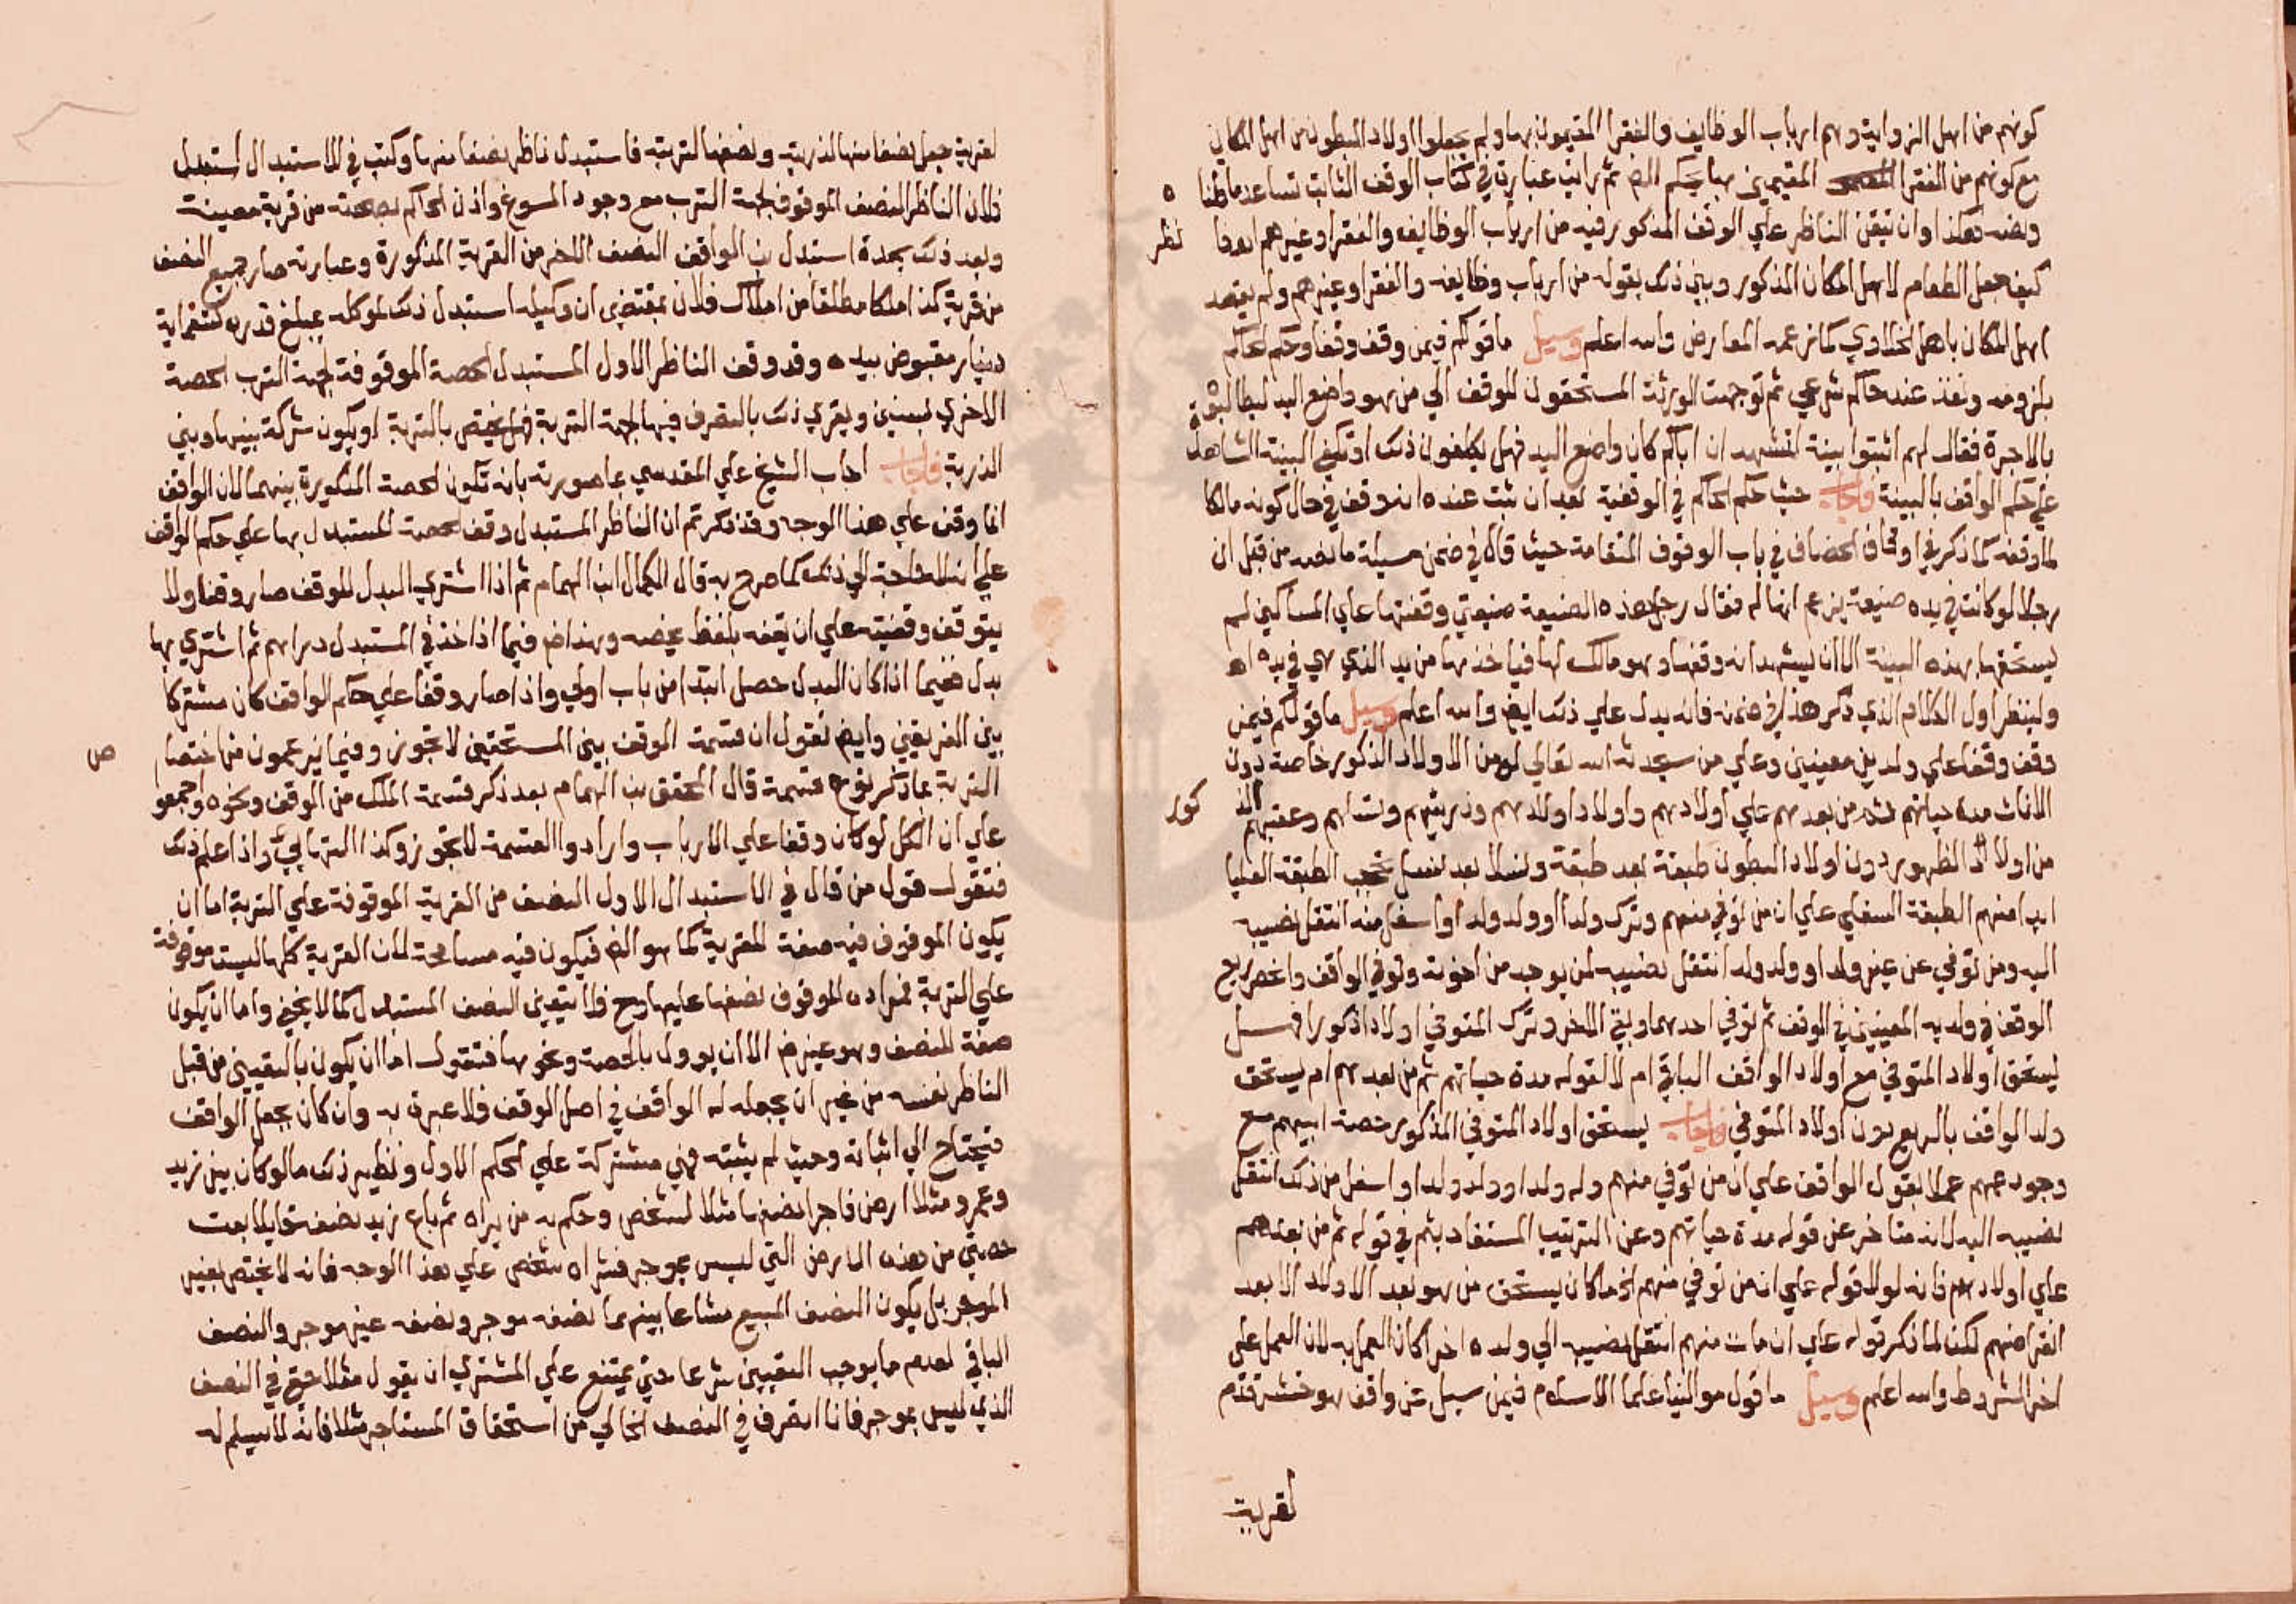 كونهم من اهل الزواية وهم ارباب الوظايف والفقرا المقيمون بها ولم يجعلوا اولاد البطون من اهل المكان
مع كونهم من الفقرا المقيمين بها بحكم النص ثم رايت عبارة في كتاب الوقف الثابت تساعد ما قلنا ه
ونصه هكذا وان يتقن الناظر علي الوقف المذكور فيه من ارباب الوظايف والفقرا وغيرهم
نظر
كيف جعل الطعام لاهل المكان المذكور وبين ذلك بقوله من ارباب وظايفه والفقرا وغيرهم ولم يقصد
اهل المكان باهل الخلاوي كما زعمه المعارض والله اعلم وسيل ما قولكم فيمن وقف وقفا وحكم الحاكم
بلزومه ونفذ عند حاكم شرعي ثم توجهت الورثة المستحقون للوقف الي من هو واضع اليد ليطالبوه
بالاجرة فقال لهم اثبتوا بينة تشهد ان اباكم كان واضع اليد فهل يكلفون ذلك او تكفي البينة الشاهدة
علي حكم الواقف بالبينة فاجاب حيث حكم الحاكم في الوقفية بعد ان ثبت عنده انه وقف في حال كونه مالكا
لما وقفه كما ذكر في اوقاف الخصاف في باب الوقوف المتقادمة حيث قال في ضمن مسيلة ما نصه من قبل ان
رجلا لو كانت في يده ضيعة يزعم انها له فقال رجل هذه الضيعة ضيعتي وقفتها علي المساكين لم
يستحقها بهذه البينة الا ان يشهد انه وقفها وهو مالك لها فياخذها من يد الذي هي في يده اه
ولينظر اول الكلام الذي ذكر هذا في ضمنه فانه يدل علي ذلك ايضا والله اعلم وسيل ما قولكم فيمن
وقف وقفا علي ولدين معينين وعلي من سيحدثه الله تعالي له من الاولاد الذكور خاصة دون
الاناث مدة حياتهم ثم من بعدهم علي اولادهم واولاد اولادهم وذريتهم ونسلهم وعقبهم
كور
من اولاد الظهور دون اولاد البطون طبقة بعد طبقة ونسلا بعد نسل تحجب الطبقة العليا
ابدا منهم الطبقة السفلي علي ان من توفي منهم وترك ولدا او ولد ولد او اسفل منه انتقل نصيبه
اليه ومن توفي عن غير ولد او ولد ولد انتقل نصيبه لمن يوجد من اخوته وتوفي الواقف وانحصر ريع
الوقف في ولديه المعينين في الوقف ثم توفي احدهما وبقي الاخر وترك المتوفي اولادا ذكورا فهل
يستحق اولاد المتوفي مع اولاد الواقف الباقي ام لا لقوله مدة حياتهم ثم من بعدهم ام يستحق
ولد الواقف بالريع دون اولاد المتوفي فاجاب يستحق اولاد المتوفي المذكور حصة ابيهم مع
وجود عمهم عملا بقول الواقف علي ان من توفي منهم وله ولد او ولد ولد او اسفل من ذلك انتقل
نصيبه اليه لانه متاخر عن قوله مدة حياتهم وعن الترتيب المستفاد بثم في قوله ثم من بعدهم
علي اولادهم فانه لولا قوله علي ان من توفي منهم الخ ما كان يستحق من هو بعد الاولاد الا بعد
انقراضهم لكن لما ذكر قوله علي ان مات منهم انتقل نصيبه الي ولده اخرا كان العمل به لان العمل علي
اخر الشروط والله اعلم وسيل ما قول موالينا علما الاسلام فيمن سيل عن واقف هو
لقرية
لقرية جعل نصفا منها لذريته ونصفها لتربته فاستبدل ناظر نصفا منها وكتب في الاستبدال استبدل
فلان الناظر النصف الموقوف لجهة الترب مع وجود المسوغ واذن الحاكم بصحته من قرية معينة
وبعد ذلك بمدة استبدل بن الواقف النصف الاخر من القرية المذكورة وعبارته صار جميع النصف
من قرية كذا ملكا مطلقا من املاك فلان بمقتضي ان وكيله استبدل ذلك لموكله بمبلغ قدره
دينار مقبوض بيده وقد وقف الناظر الاول المستبدل الحصة الموقوفة لجهة الترب الحصة
الاخري ذلك بالتصرف فيها لجهة التربة فهل يختص بالتربة او يكون شركة بينها وبين
الذرية فاجاب اجاب الشيخ علي المقدسي بما صورته بانه تكون الحصة المذكورة بينهما لان الواقف
انما وقف علي هذا الوجه وقد ذكر تم ان الناظر المستبدل وقف الحصة المستبدل بها علي حكم الواقف
علي انه لا حاجة الي ذلك كما صرح به قال الكمال ابن الهمام ثم اذا اشتري البدل للوقف صار وقفا ولا
يتوقف وقفيته علي ان يقفه بلفظ يخصه وهذا فيما اذا اخذ في المستبدل دراهم ثم اشتري بها
بدل ففيما اذا كان البدل حصل ابتدا من باب اولي واذا صار وقفا علي حكم الواقف كان مشتركا
بين الفريقين وايضا نقول ان قسمة الوقف بين المستحقين لا تجوز وفيما يزعمون من اختصاص
ص
التربة بما ذكر نوع قسمة قال المحقق بن الهمام بعد ذكر قسمة الملك من الوقف ونحوه واجمعوا
علي ان الكل لو كان وقفا علي الارباب وارادوا القسمة لا تجوز وكذا التهايي واذا علم ذلك
فنقول قول من قال في الاستبدال الاول النصف من القرية الموقوفة علي التربة اما ان
يكون الموقوف فيه صفة للقرية كما هو فيكون فيه مسامحة لان القرية كلها ليست موقوفة
علي التربة فمراده الموقوف نصفها عليها وح فلا يتعين النصف المستبدل كما لا يخفي واما ان يكون
صفة للنصف وهو غير الا ان يوول بالحصة ونحوها فنقول اما ان يكون بالتعيين من قبل
الناظر نفسه من غير ان يجعله له الواقف في اصل الوقف فلا عبرة به وان كان بجعل الواقف
فيحتاج الي اثباته وحيث لم يثبته فهي مشتركة علي الحكم الاول ونظير ذلك ما لو كان بين زيد
وعمرو مثلا ارض فاجرا نصفها مثلا لشخص وحكم به من يراه ثم باع زيد نصفه قايلا بعت
حصتي من هذه الارض التي ليس بموجر فشراه شخص علي هذا الوجه فانه لا يختص بغير
الموجر بل يكون النصف المبيع مشاعا بينهما نصفه موجر ونصفه غير موجر والنصف
الباقي لعدم ما يوجب التعيين شرعا حتي يمتنع علي المشتري ان يقول مثلا حقي في النصف
الذي ليس بموجر فانا اتصرف في النصف الخالي من استحقاق المستاجر مثلا فانه لا يسلم له